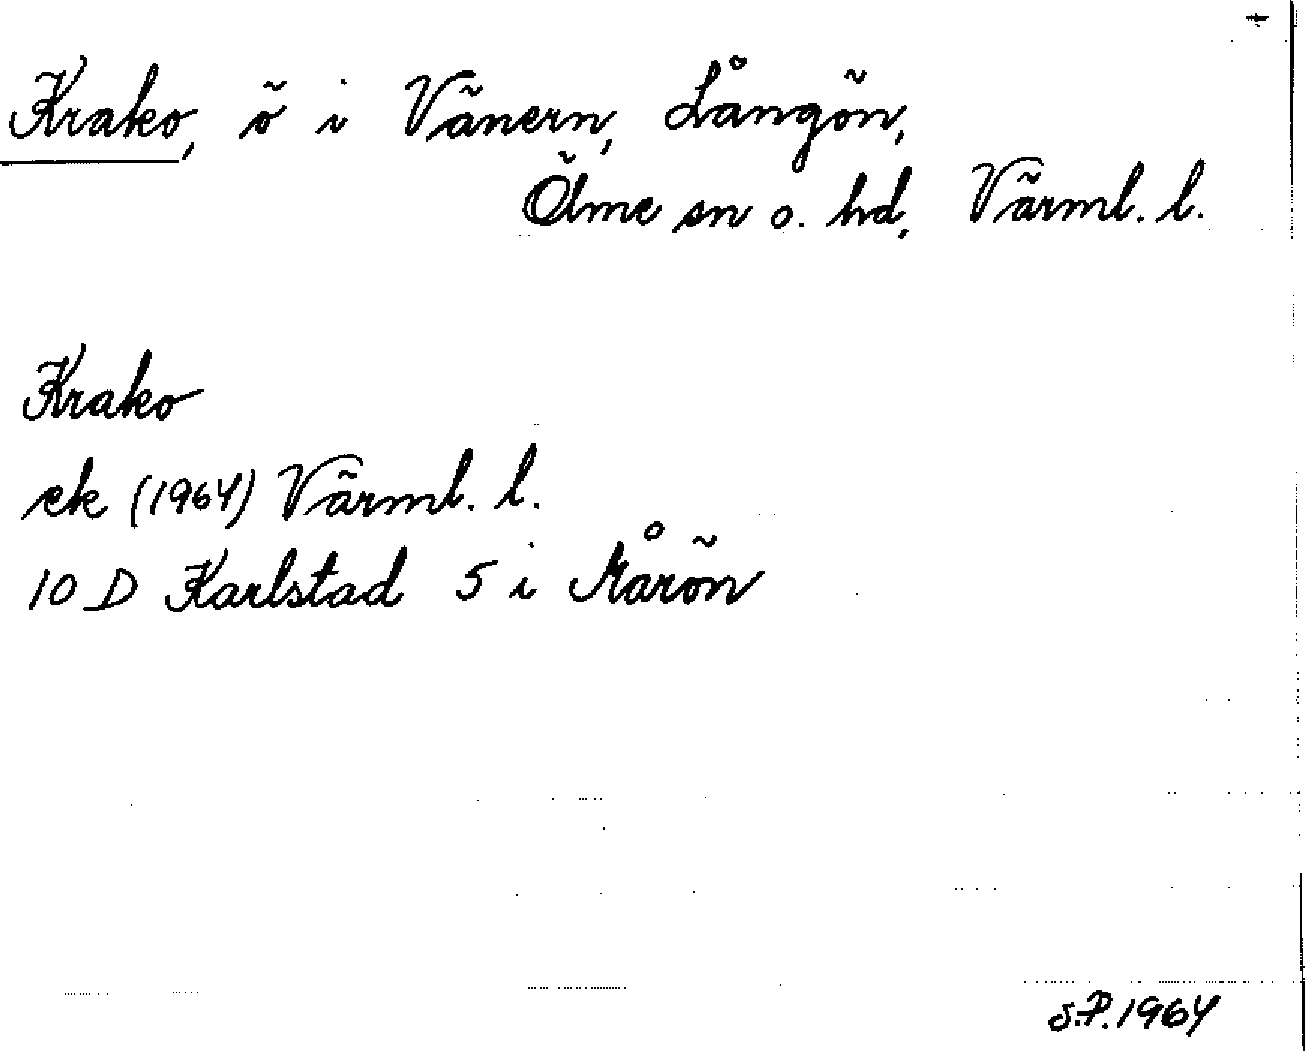 Krako, ö i Vänern, Långön,
Ölme sn o. hd, Värml. l.
Krako
ek (1964) Värml. l.
10 D Karlstad 5 i Årön
S.P. 1964